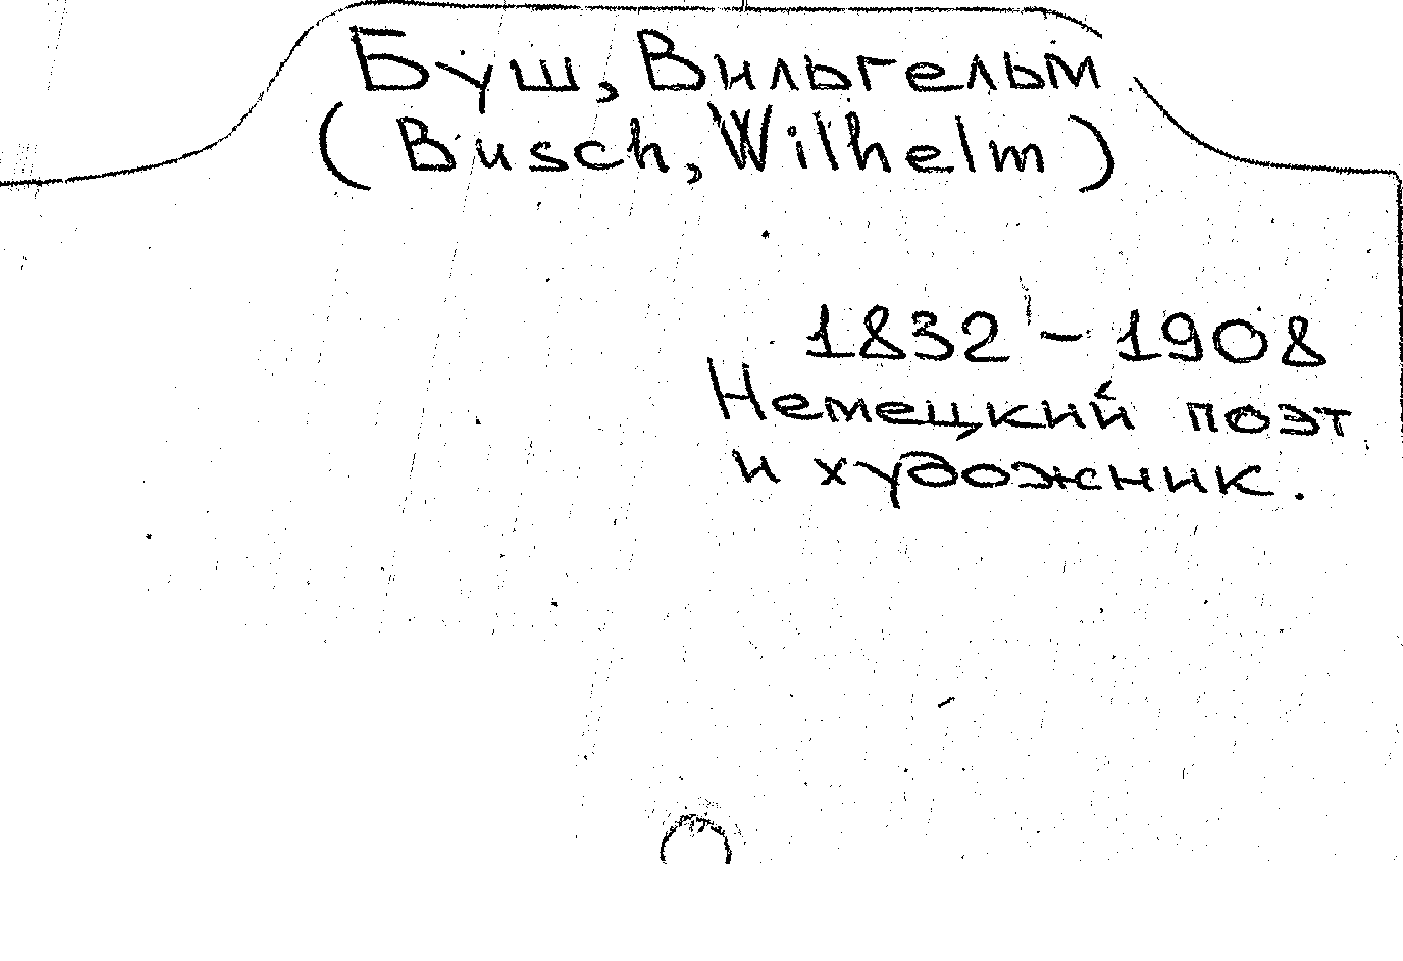 Буш, Вильгельм
(Busch, Wilhelm)
1832 – 1908
Немецкий поэт
и художник.